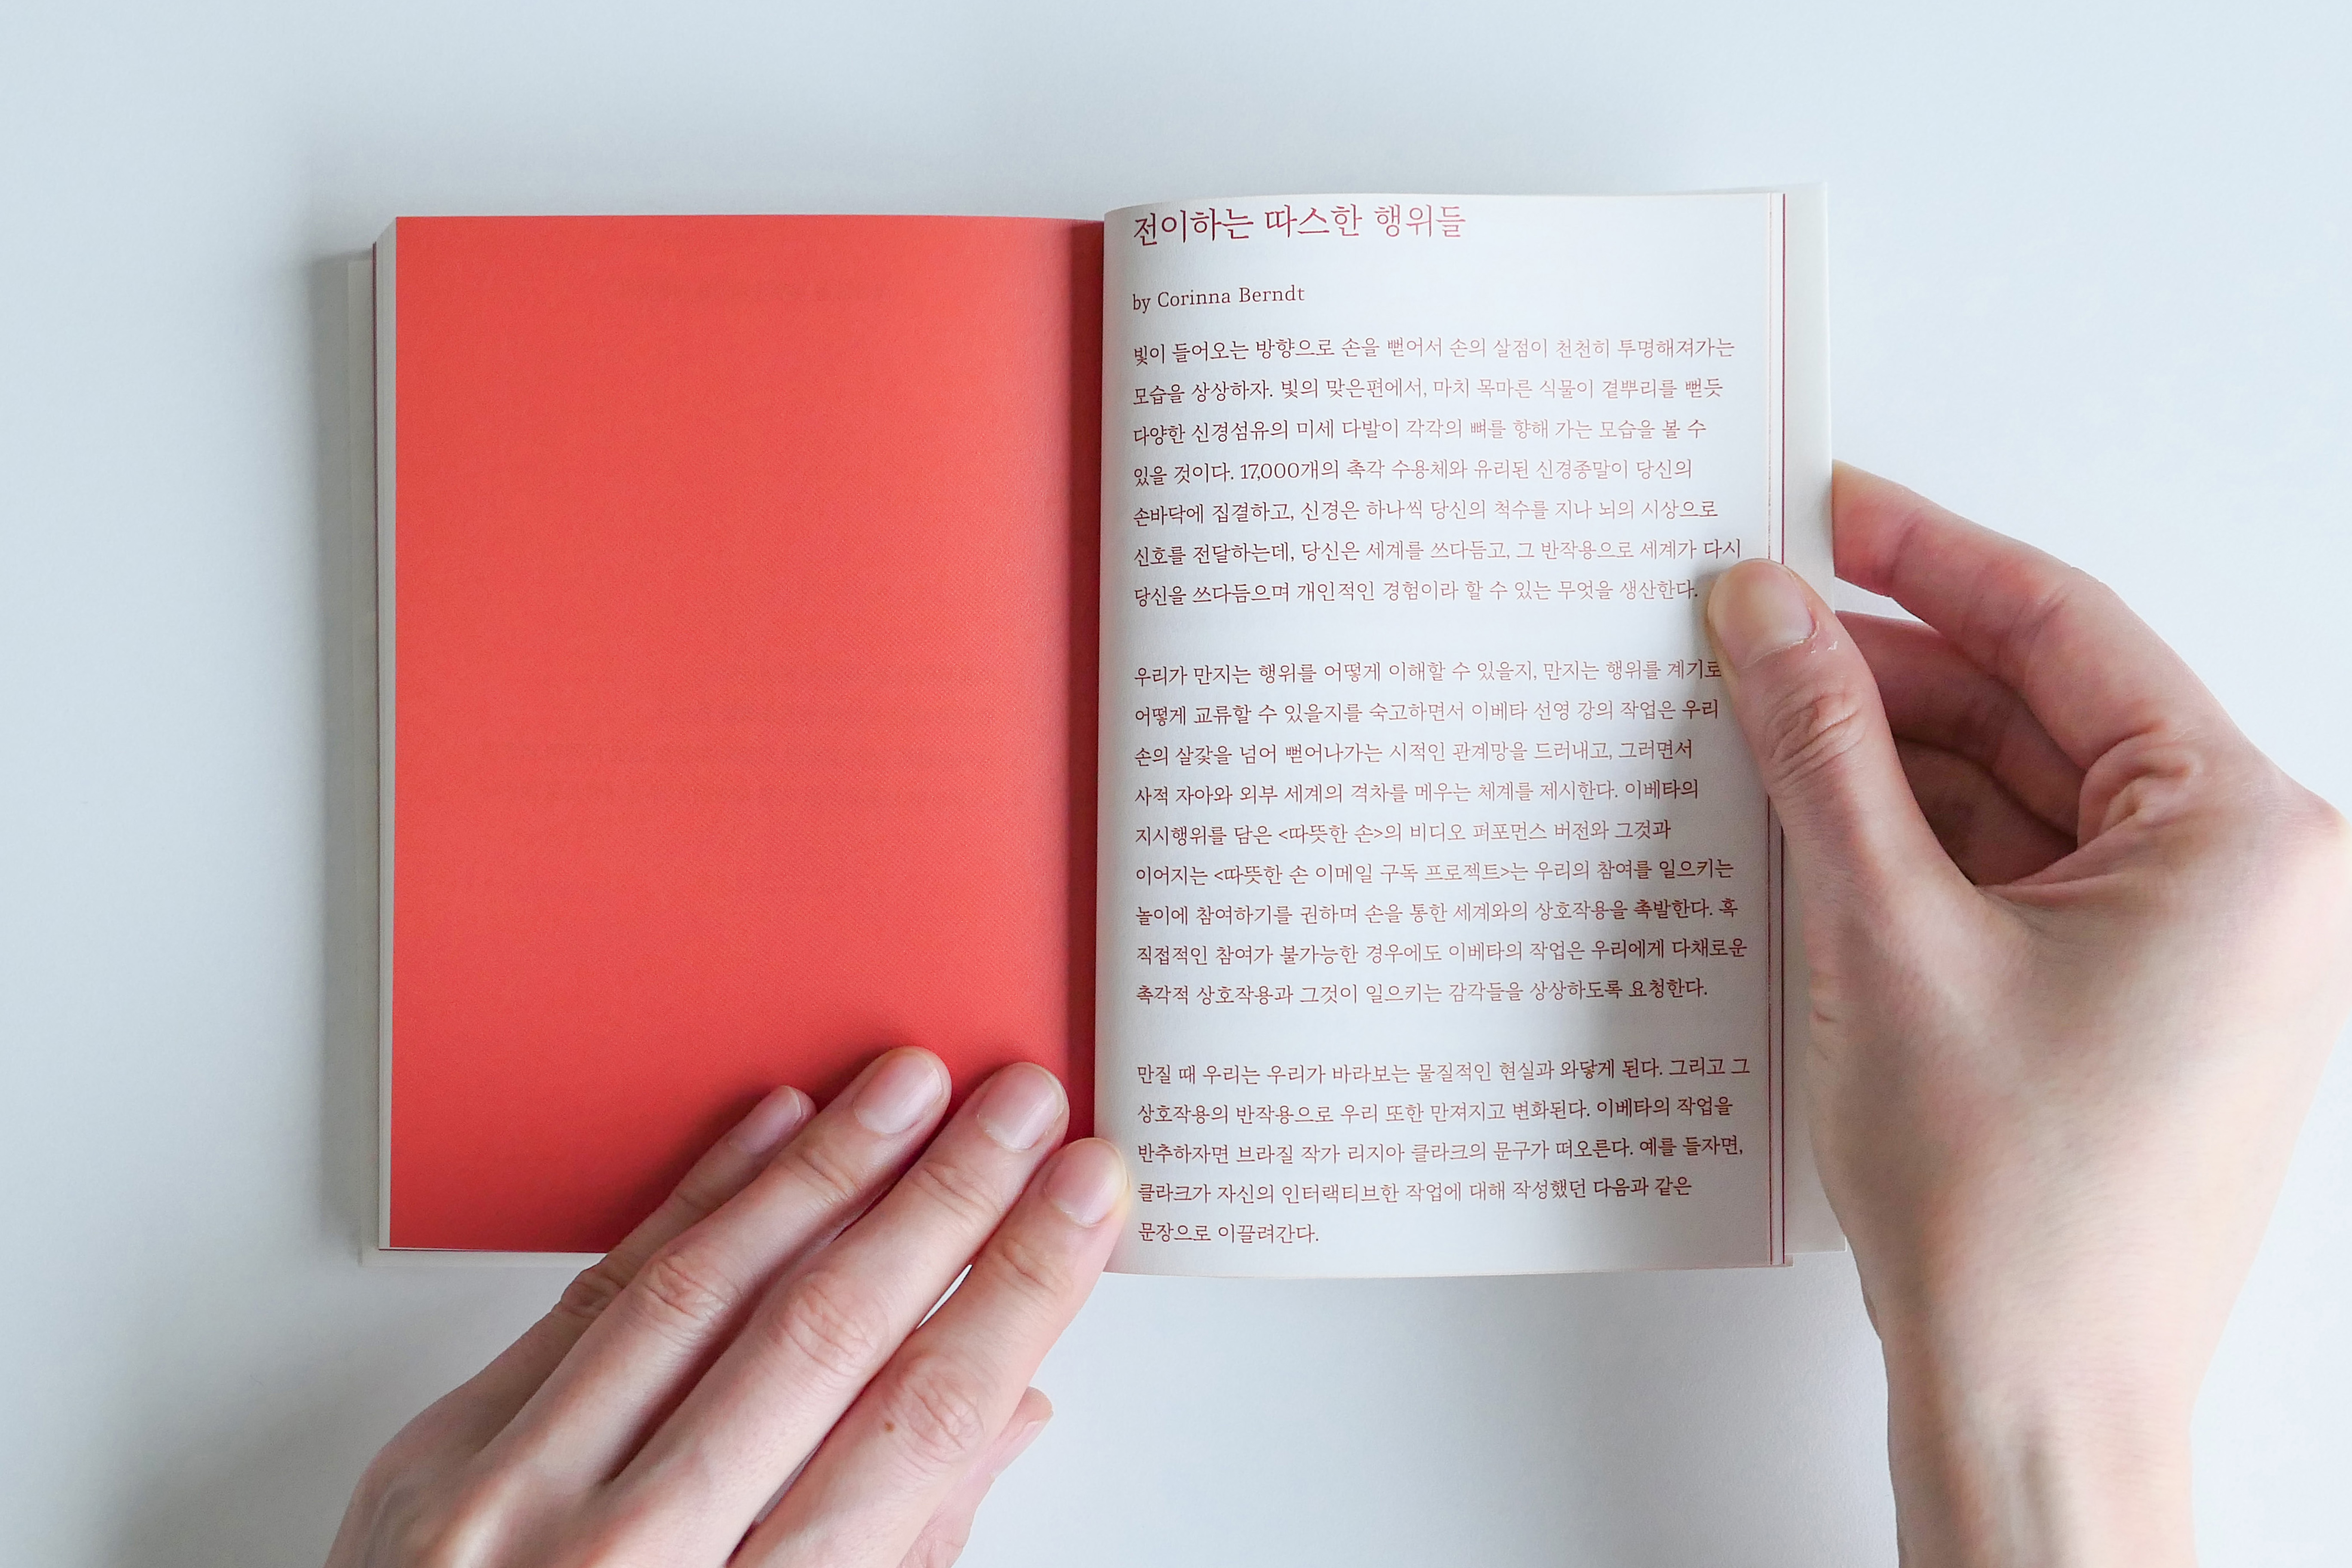 전이하는 따스한 행위들
by Corinna Berndt
빛이 들어오는 방향으로 손을 뻗어서 손의 살점이 천천히 투명해져가는
모습을 상상하자. 빛의 맞은편에서, 마치 목마른 식물이 곁뿌리를 뻗듯
다양한 신경섬유의 미세 다발이 각각의 뼈를 향해 가는 모습을 볼 수
있을 것이다. 17,000개의 촉각 수용체와 유리된 신경종말이 당신의
손바닥에 집결하고, 신경은 하나씩 당신의 척수를 지나 뇌의 시상으로
신호를 전달하는데, 당신은 세계를 쓰다듬고, 그 반작용으로 세계가 다시
당신을 쓰다듬으며 개인적인 경험이라 할 수 있는 무엇을 생산한다.
우리가 만지는 행위를 어떻게 이해할 수 있을지, 만지는 행위를 계기로
어떻게 교류할 수 있을지를 숙고하면서 이베타 선영 강의 작업은 우리
손의 살갗을 넘어 뻗어나가는 시적인 관계망을 드러내고, 그러면서
사적 자아와 외부 세계의 격차를 메우는 체계를 제시한다. 이베타의
지시행위를 담은 <따뜻한 손>의 비디오 퍼포먼스 버전와 그것과
이어지는 <따뜻한 손 이메일 구독 프로젝트>는 우리의 참여를 일으키는
놀이에 참여하기를 권하며 손을 통한 세계와의 상호작용을 촉발한다. 혹
직접적인 참여가 불가능한 경우에도 이베타의 작업은 우리에게 다채로운
촉각적 상호작용과 그것이 일으키는 감각들을 상상하도록 요청한다.
만질 때 우리는 우리가 바라보는 물질적인 현실과 와닿게 된다. 그리고 그
상호작용의 반작용으로 우리 또한 만져지고 변화된다. 이베타의 작업을
반추하자면 브라질 작가 리지아 클라크의 문구가 떠오른다. 예를 들자면,
클라크가 자신의 인터랙티브한 작업에 대해 작성했던 다음과 같은
문장으로 이끌려간다.